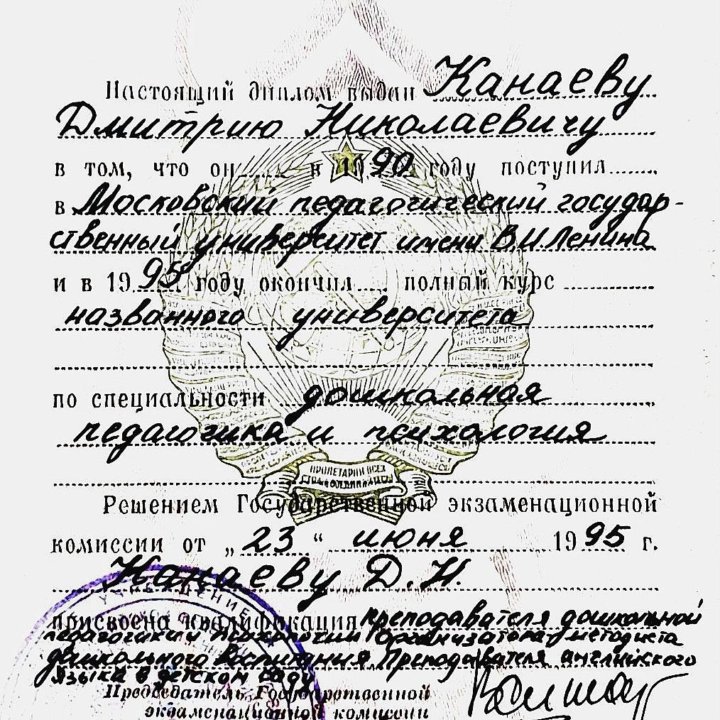 Настоящий диплом выдан Канаеву
Дмитрию Николаевичу
в том, что он в 1990 году поступил
в Московский педагогический государ-
ственный университет имени В.И Ленина
и в 1995 году окончил полный курс
названного университета
по специальности дошкольная
педагогика и психология
ПРОЛЕТАРИИ ВСЕХ
СТРАН СОЕДИНЯЙТЕСЬ
Решением Государственной экзаменационной
комиссии от „23“ июня 1995 г.
Канаеву Д.Н.
присвоена квалификация преподавателя дошкольной
педагогики и психологии Организатора методиста
дошкольного воспитания Преподавателя английского
языка в детском саду
Председатель Государственной
экзаменационной комиссии